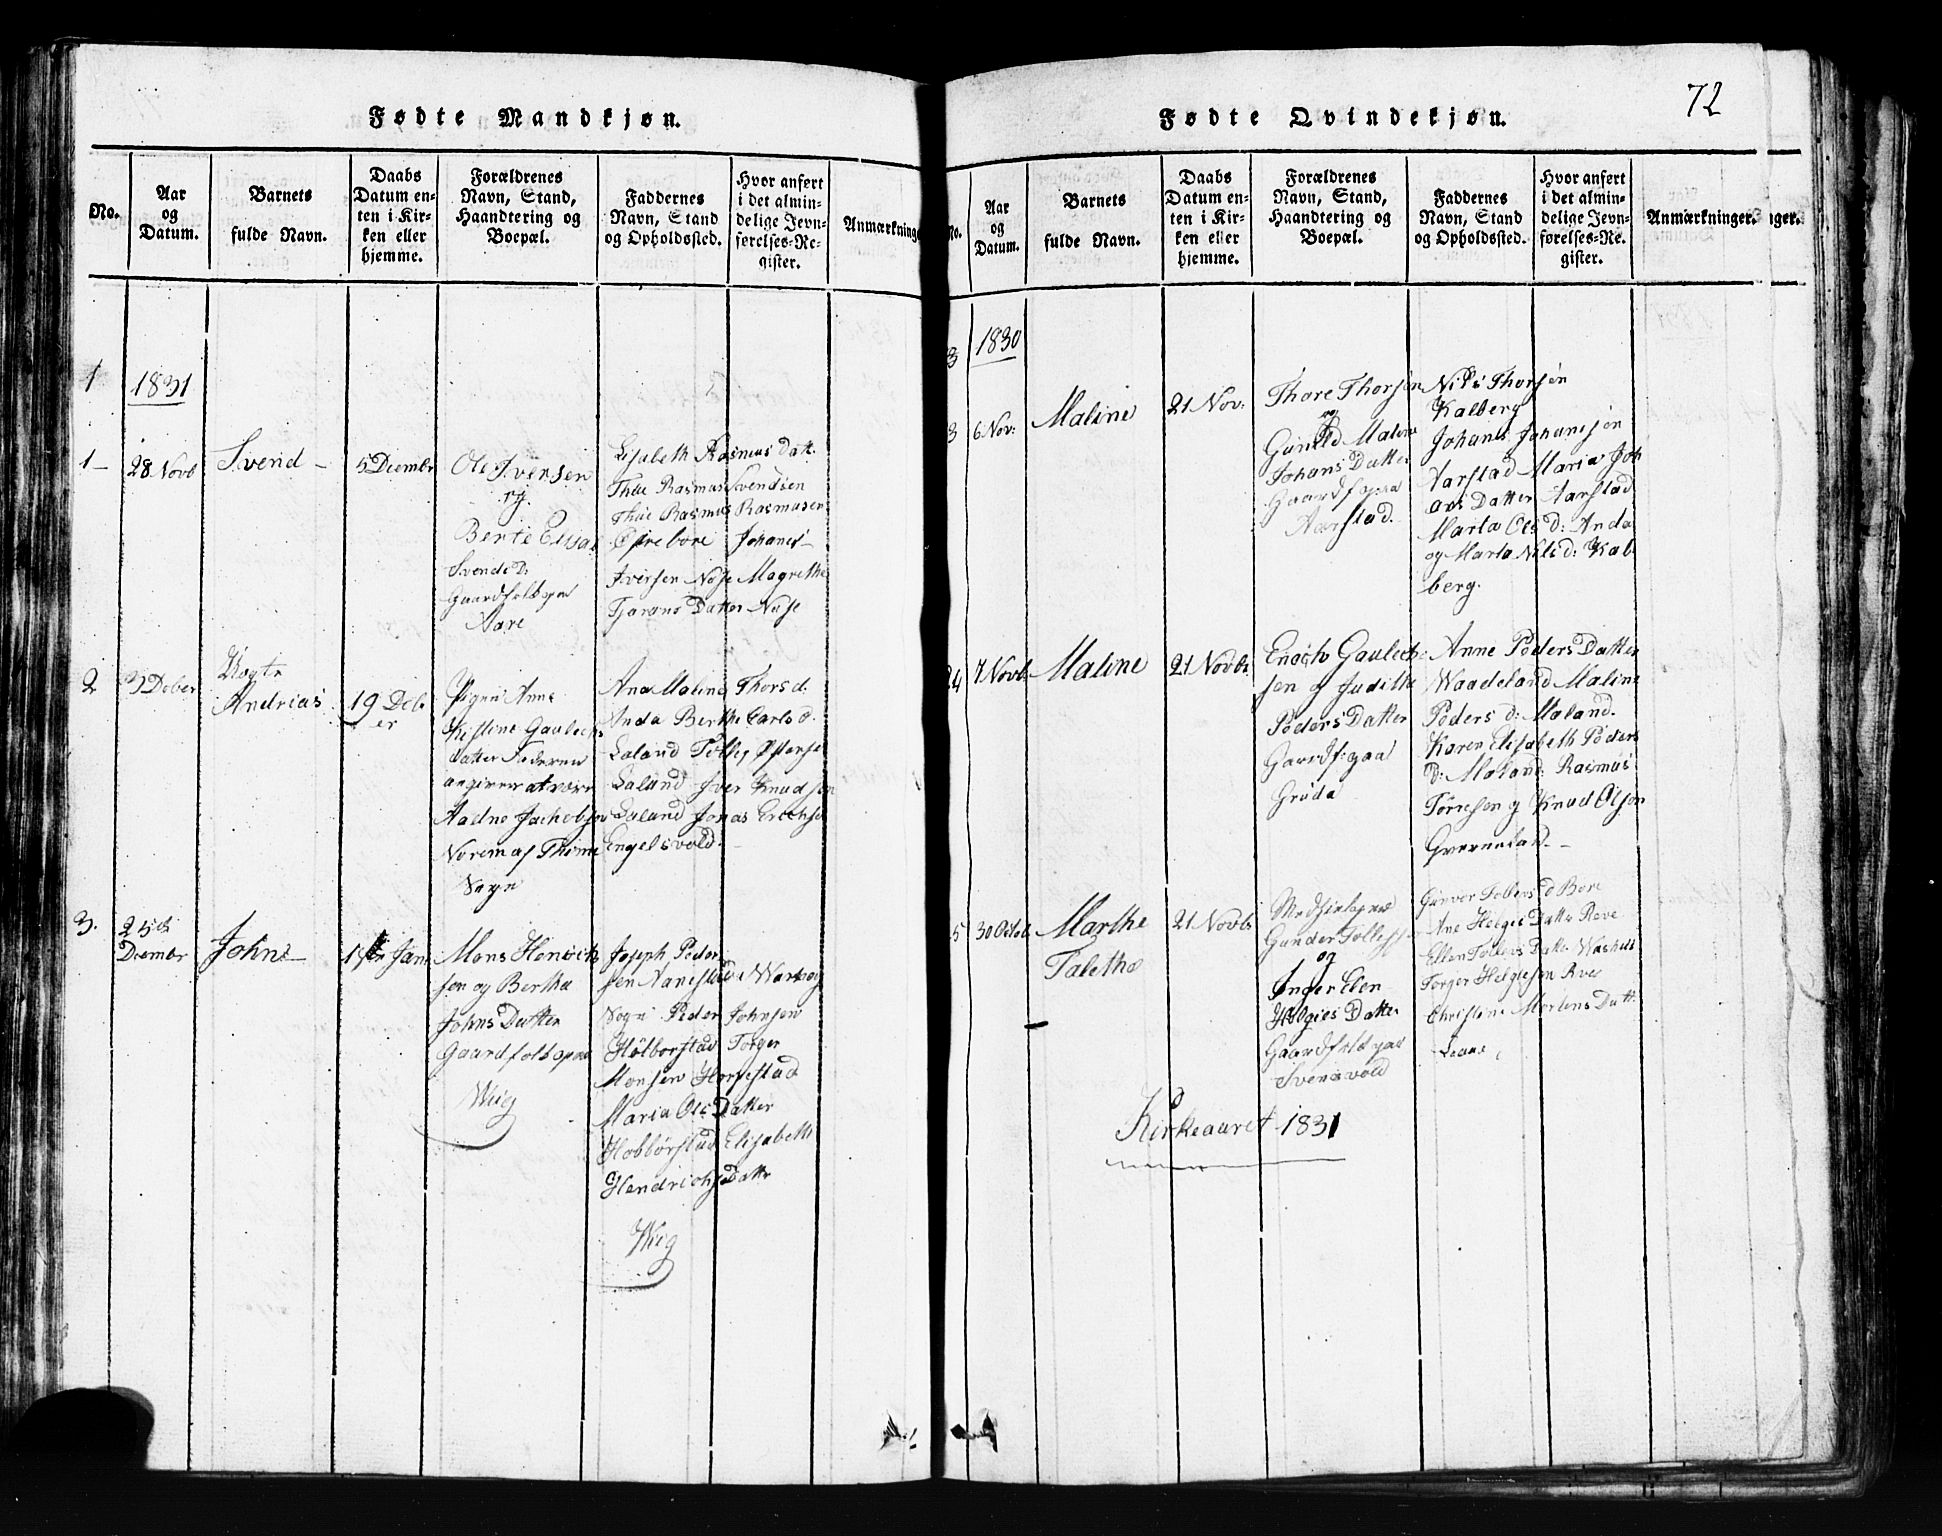 Fødte Mandkjøn.
No.
Aar
og
Datum.
Barnets
fulde Navn.
Daabs
Datum en-
ten i Kir-
ken eller
hjemme.
Forældrenes
Navn, Stand,
Haandtering og
Boepæl.
Faddernes
Navn, Stand
og Opholdssted.
Hvor anført
i det almin-
delige Jevn-
førelses-Re-
gister.
Anmærkninge
1
1831
1 –
28 Novb
Svend –
5 Dcembr
Ole Iversen
og
Berte
Svends D:
Gaardfolk paa
Aare
Lisabeth Rasmus Datt.
Thue Rasmus Svendsen
Thue Rasmus Rasmusen
Johanes –
Iversen Nose Magrethe
Datter Nose
2
3 Dcber
Uægte
Andrias
19 Dcb
er
Pigen Anne
Kistine Gaulechs
datter Faderen
angiven at være
Jachobsen
Norem af Thime
Sogn
Ana Maline Thors d.
Anda Berthe Carls d.
Laland Tolles
Laland Iver Knudsen
Laland Jonas
Engelsvold.
3.
25de
Dcembr
Johns –
1ste Jan
Mons Henrich
sen og Bertha
Johns Datter
Gaardfolk paa
Wiig
Joseph Peder
sen
Sogn Peder Johnsen
Hølborstad Torger
Monsen Horpestad
Maria Ols Datter
Hobbørstad Elisabeth
Hendrichs Dattr
Wiig
72
Fødte Qvindekjøn.
No.
Aar
og
Datum.
Barnets
fulde Navn.
Daabs
Datum en-
ten i Kir-
ken eller
hjemme.
Forældrenes
Navn, Stand,
Haandtering og
Boepæl.
Faddernes
Navn, Stand
og Opholdssted.
Hvor anført
i det almin-
delige Jevn-
førelses-Re-
gister.
Anmærkninger.
nger.
3
1830
3
6 Nov:
Maline
21 Nov:
Thore Thorsen
og
Gunild Malene
Johans Datter
Gaardf paa
Aarstad.
Nils Thorsen
Kalberg
Johanes Johansen
Aarstad Maria Joh
ans Datter Aarstad
Marta Ols d: Anda
og Marta Nils d: Kal
berg.
24
7 Novb
Maline
21 Novbr
Enoch Gaulech
sen og Judithe
Peders Datter
Gaardf: paa
Gruda
Anne Peders Datter
Waadeland Maline
Peders d: Maland.
Karen Elisabeth Peders
D: Maland: Rasmus
Torresen og Knud Olsen
Grvæneland. –
5
30 Octob
Marthe
Talethe
21 Novbr
Gunder Tollefsen
og
Inger Elen
Helgies Datter
Gaardfolk paa
Svensvold
Gunvor Tolless d Bore
Ane Helgies Datter Reve
Ellen Tollevs Datter
Torger Helgiesen Reve
Christine Mortens Datt
Kirkeaaret 1831